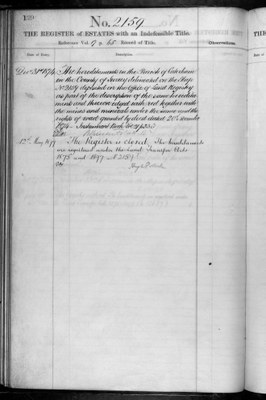 139
No. 2159.
THE REGISTER of ESTATES with an Indefeasible Title.
Reference Vol. 9 p. 65 Record of Title.
Observations.
Date of Entry.
Description.
Dec 31st 1874 The hereditaments in the Parish of Caterham
in the County of Surrey delineated on the Map
No 2159 deposited in the Office of Land Registry
as part of the description of the same heredita-
ments and thereon edged with red together with
the mines and minerals under the same and the
rights of road granted by deed dated
1874
12th May 1897 The Register is closed. The hereditaments
are registered under the Land Transfer Acts
1875 and 1897